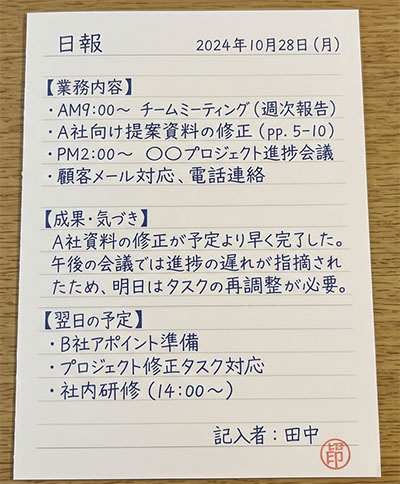 日報 2024年10月28日(月)
【業務内容】
・AM9:00〜 チームミーティング(週次報告)
・A社向け提案資料の修正(pp.5-10)
・PM2:00〜 〇〇プロジェクト進捗会議
・顧客メール対応、電話連絡
【成果・気づき】
A社資料の修正が予定より早く完了した。
午後の会議では進捗の遅れが指摘され
たため、明日はタスクの再調整が必要。
【翌日の予定】
・B社アポイント準備
・プロジェクト修正タスク対応
・社内研修(14:00〜)
記入者:田中
印